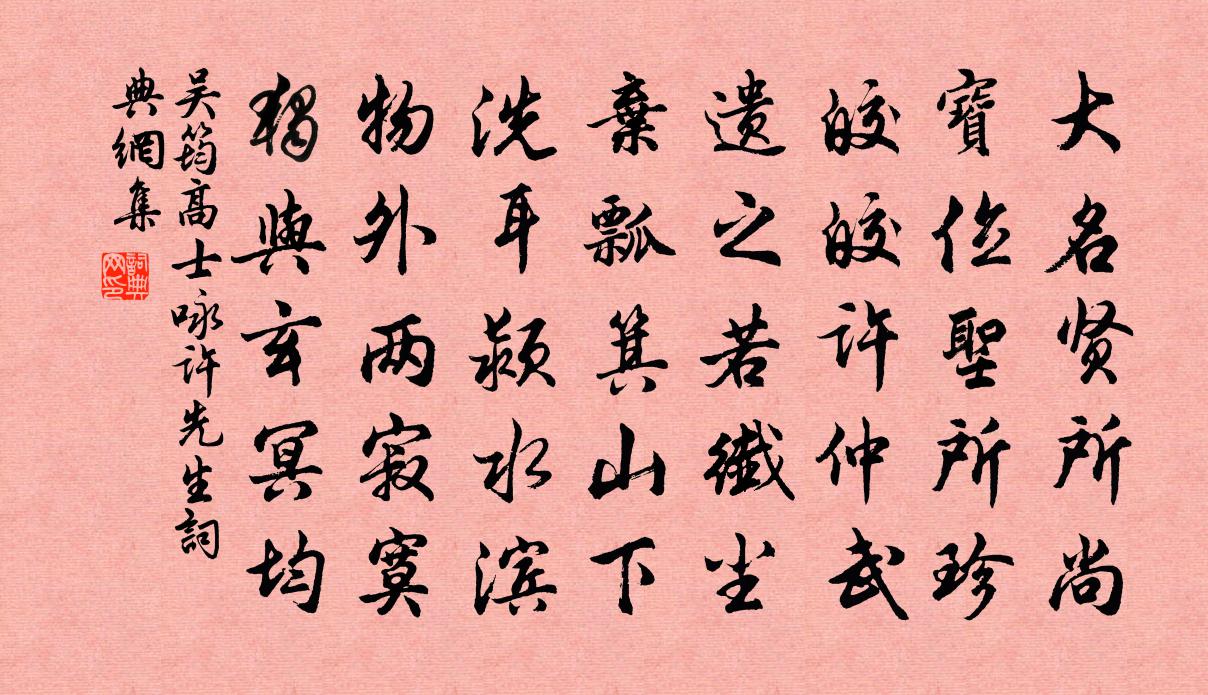 大名贤所尚
寶位聖所珍
皎皎许仲武
遗之若纖尘
棄瓢箕山下
洗耳颍水滨
物外两寂寞
獨與玄冥均
吴筠高士咏许先生詞
典網集
詞典网印